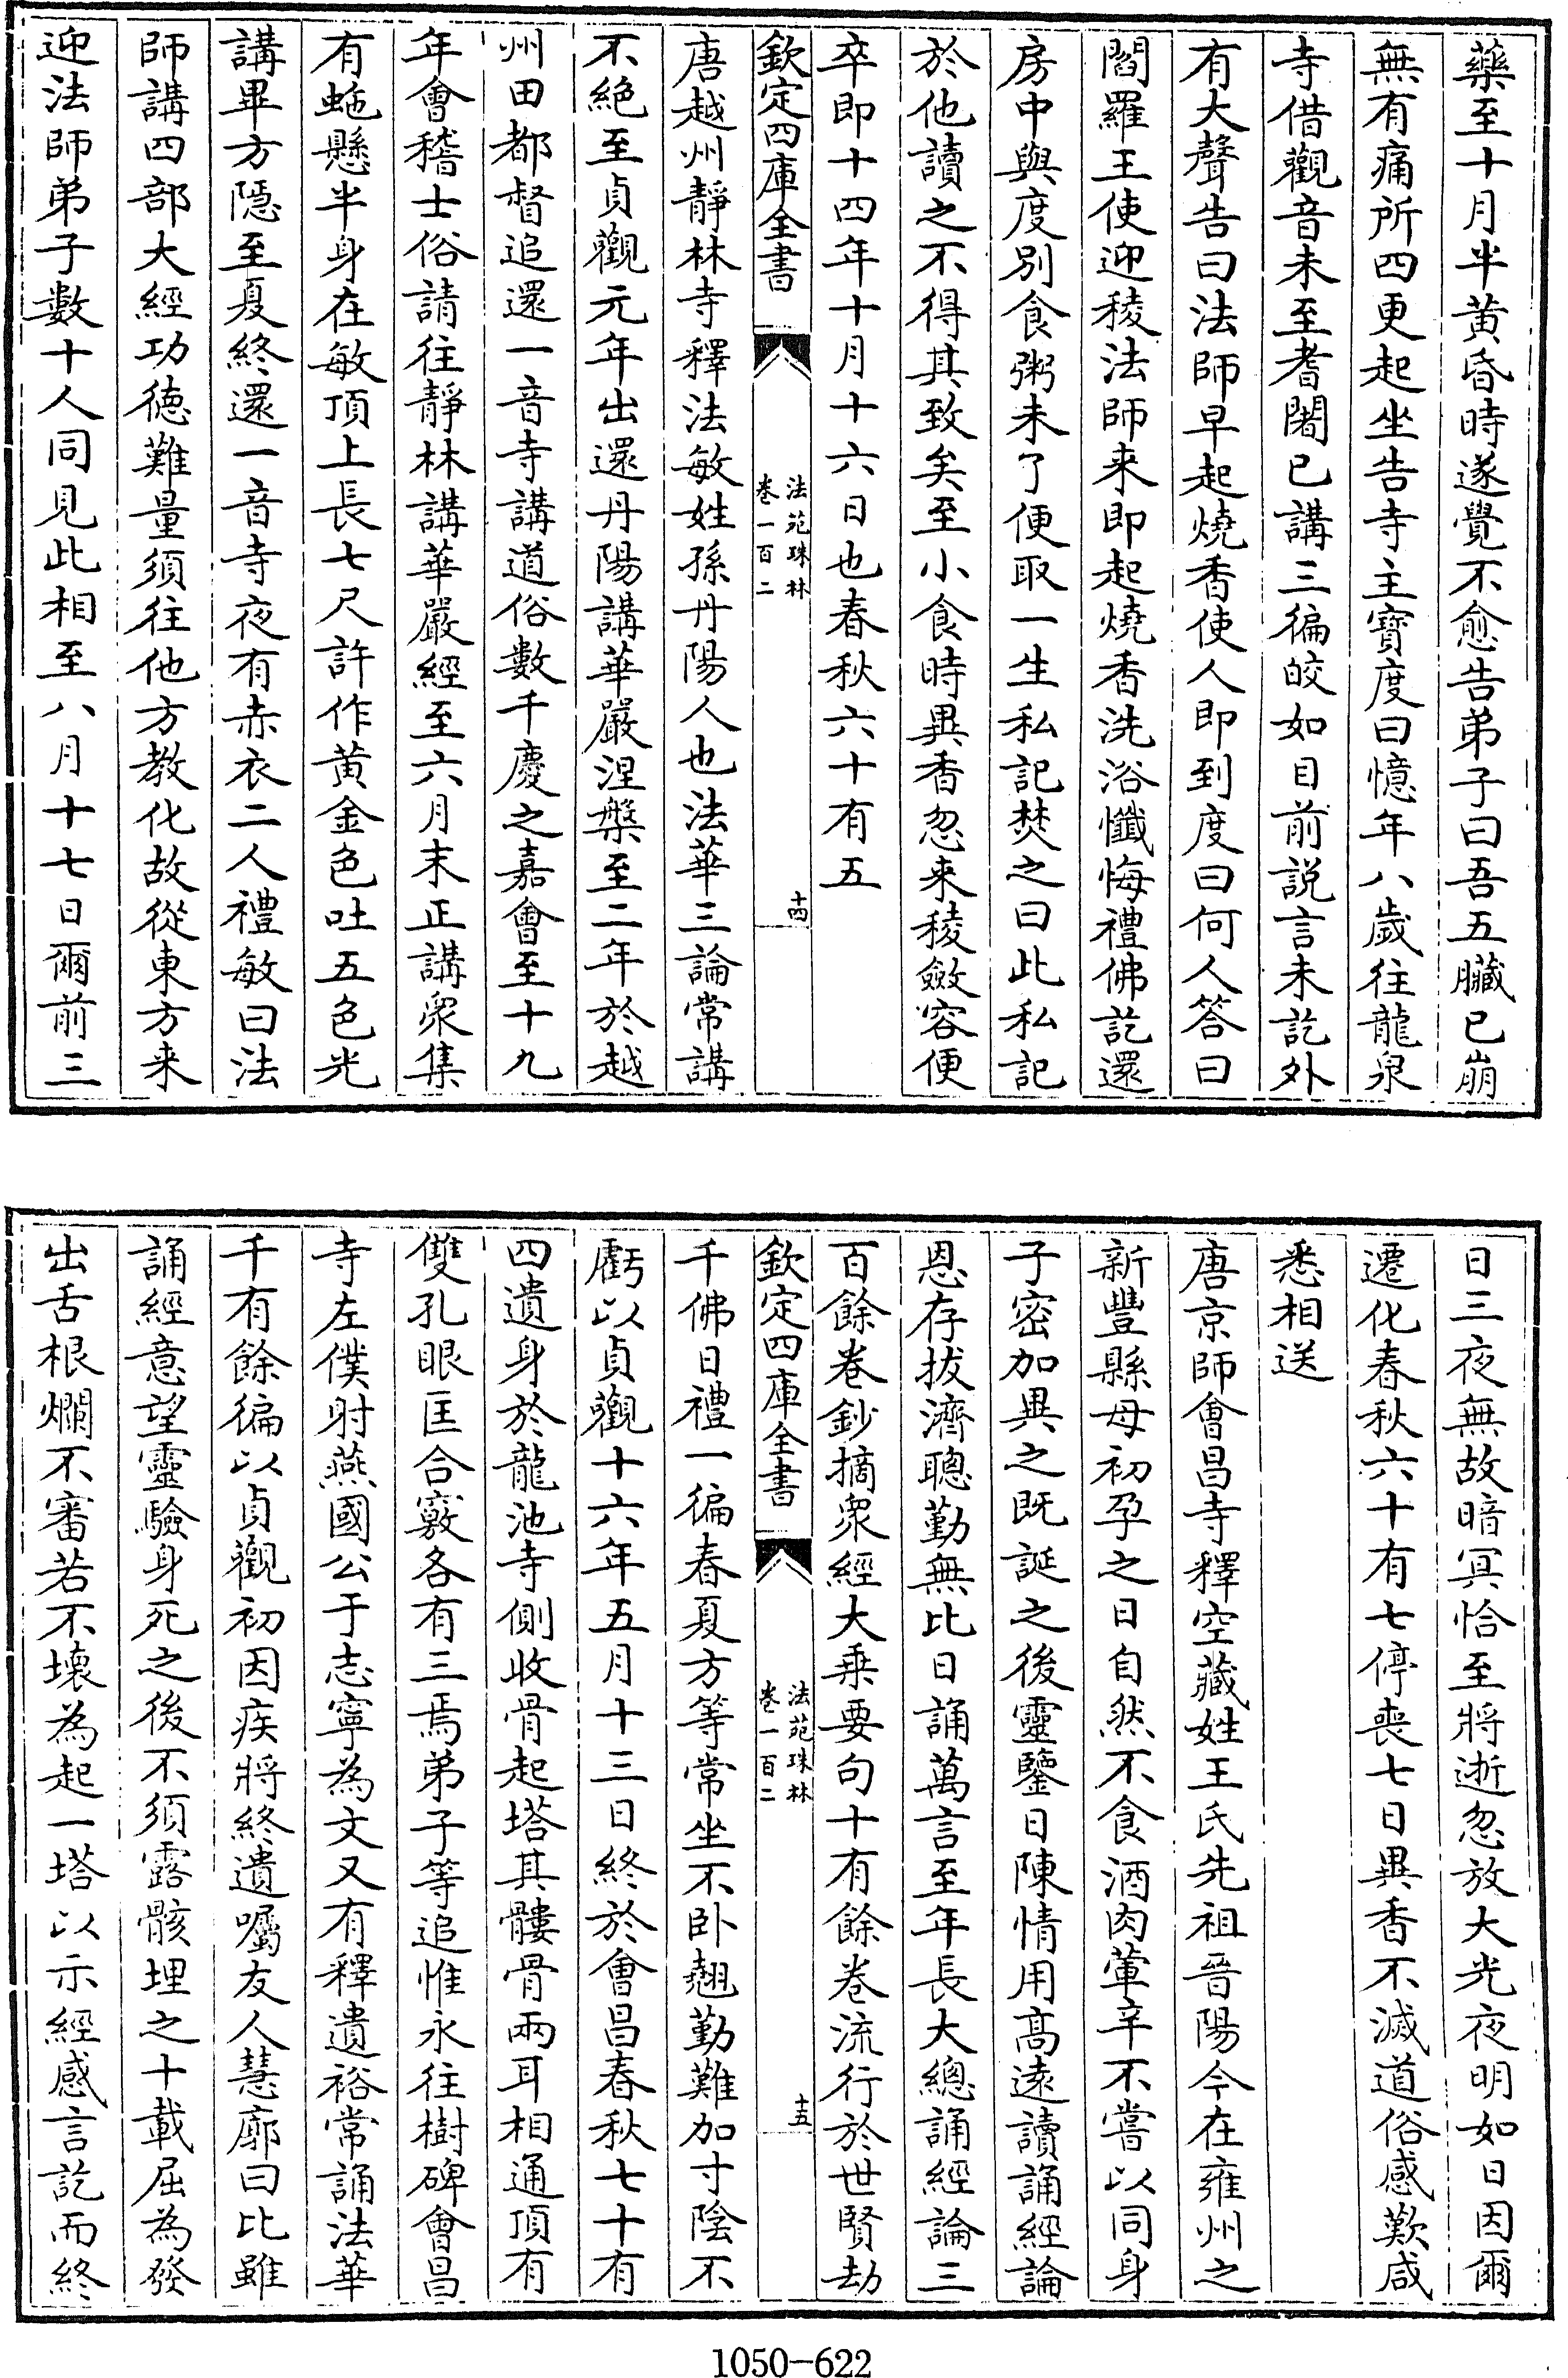 藥至十月半黄昏時遂覺不愈告弟子曰吾五臟已崩
無有痛所四更起坐告寺主寳度曰憶年八歲往龍泉
寺借觀音未至耆闍已講三徧皎如目前説言未訖外
有大聲告曰法師早起燒香使人即到度曰何人答曰
閻羅王使迎稜法師来即起燒香洗浴懺悔禮佛訖還
房中與度别食粥未了便取一生私記焚之曰此私記
於他讀之不得其致矣至小食時異香忽来稜斂容便
卒即十四年十月十六日也春秋六十有五
欽定四庫全書
法苑珠林
卷一百二
十四
唐越州靜林寺釋法敏姓孫丹陽人也法華三論常講
不絶至貞觀元年出還丹陽講華嚴涅槃至二年於越
州田都督追還一音寺講道俗數千慶之嘉會至十九
年會稽士俗請往靜林講華嚴經至六月末正講衆集
有虵懸半身在敏頂上長七尺許作黄金色吐五色光
講畢方隱至夏終還一音寺夜有赤衣二人禮敏曰法
師講四部大經功德難量須往他方教化故從東方来
迎法師弟子數十人同見此相至八月十七日爾前三
日三夜無故暗冥恰至將逝忽放大光夜明如日因爾
遷化春秋六十有七停喪七日異香不滅道俗感歎咸
悉相送
唐京師會昌寺釋空藏姓王氏先祖晉陽今在雍州之
新豐縣母初孕之日自然不食酒肉葷辛不嘗以同身
子密加異之既誕之後靈鑒日陳情用髙遠讀誦經論
恩存拔濟聰勤無比日誦萬言至年長大總誦經論三
百餘卷鈔摘衆經大乗要句十有餘卷流行於世賢劫
欽定四庫全書
法苑珠林
卷一百二
十五
千佛日禮一徧春夏方等常坐不卧翹勤難加寸陰不
虧以貞觀十六年五月十三日終於會昌春秋七十有
四遺身於龍池寺側收骨起塔其髏骨兩耳相通頂有
雙孔眼匡合竅各有三焉弟子等追惟永往樹碑會昌
寺左僕射燕國公于志寧為文又有釋遺裕常誦法華
千有餘徧以貞觀初因疾將終遺囑友人慧廓曰比雖
誦經意望靈驗身死之後不須露骸埋之十載屈為發
出舌根爛不審若不壞為起一塔以示經感言訖而終
1050-622